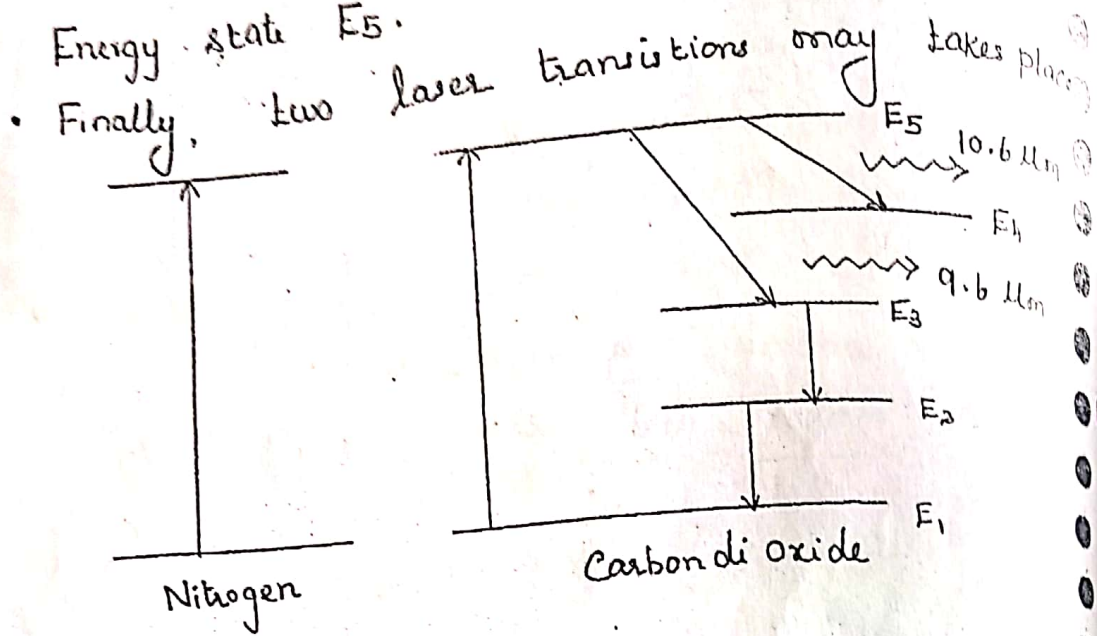 Energy state E5.
• Finally, two laser transistions may takes place
E5
10.6 μm
E4
9.6 μm
E3
E2
E1
Carbon di oxide
Nitrogen